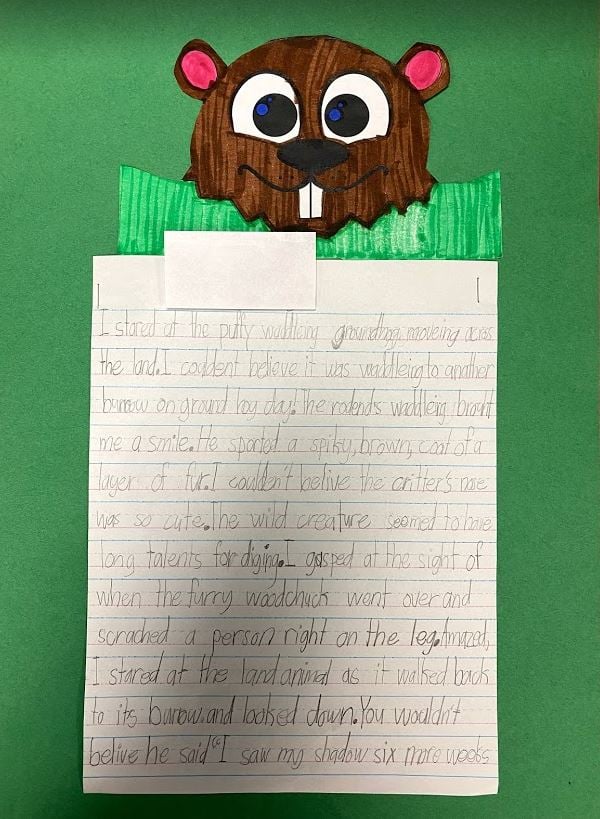 I stared at the puffy waddleing groundhog moveing acrss
the land. I couldent believe it was waddleing to another
burrow on ground hog day! The rodends waddleing brount
me a smile. He sported a spiky, brown, coat of a
layer of fur. I couldn't belive the critter's nose
was so cute. The wild creature seemed to have
long talents for diging. I gasped at the sight of
when the furry woodchuck went over and
scrached a person right on the leg. Amazed,
I stared at the land animal as it walked back
to its burrow and looked down. You wouldn't
belive he said "I saw my shadow six more weeks